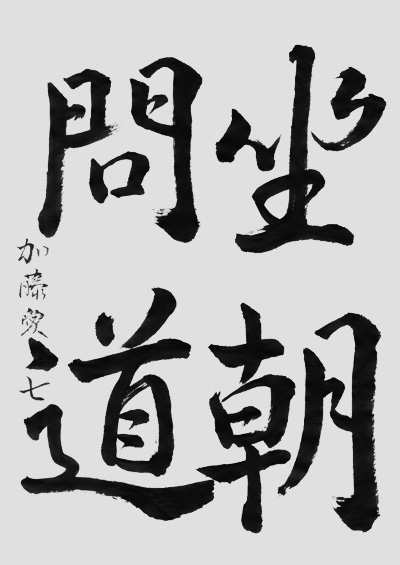 坐朝
問道
加藤愛七